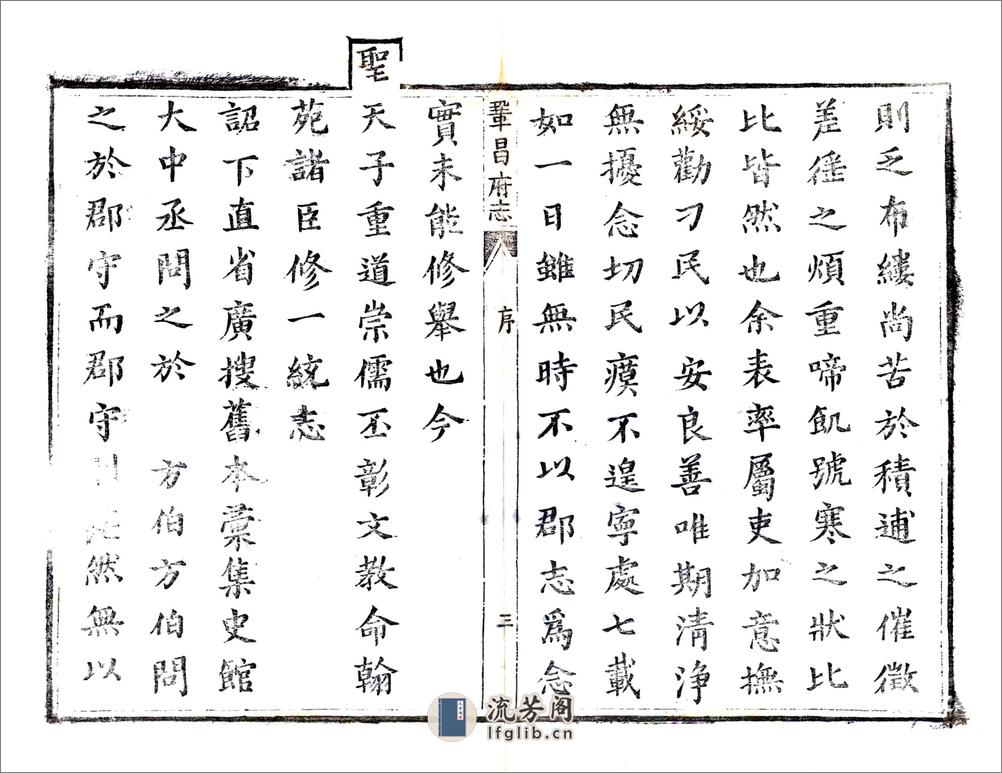 則乏布縷尚苦於積逋之催徵
差徭之煩重啼飢號寒之狀比
比皆然也余表率屬吏加意撫
綏勸刁民以安良善唯期清淨
無擾念切民瘼不遑寧處七載
如一日雖無時不以郡志爲念
鞏昌府志 序 三
實未能修舉也今
聖
天子重道崇儒丕彰文教命翰
苑諸臣修一統志
詔下直省廣搜舊本彙集史館
大中丞問之於 方伯方伯問
之於郡守而郡守 茫然無以
流芳阁
lfglib.cn